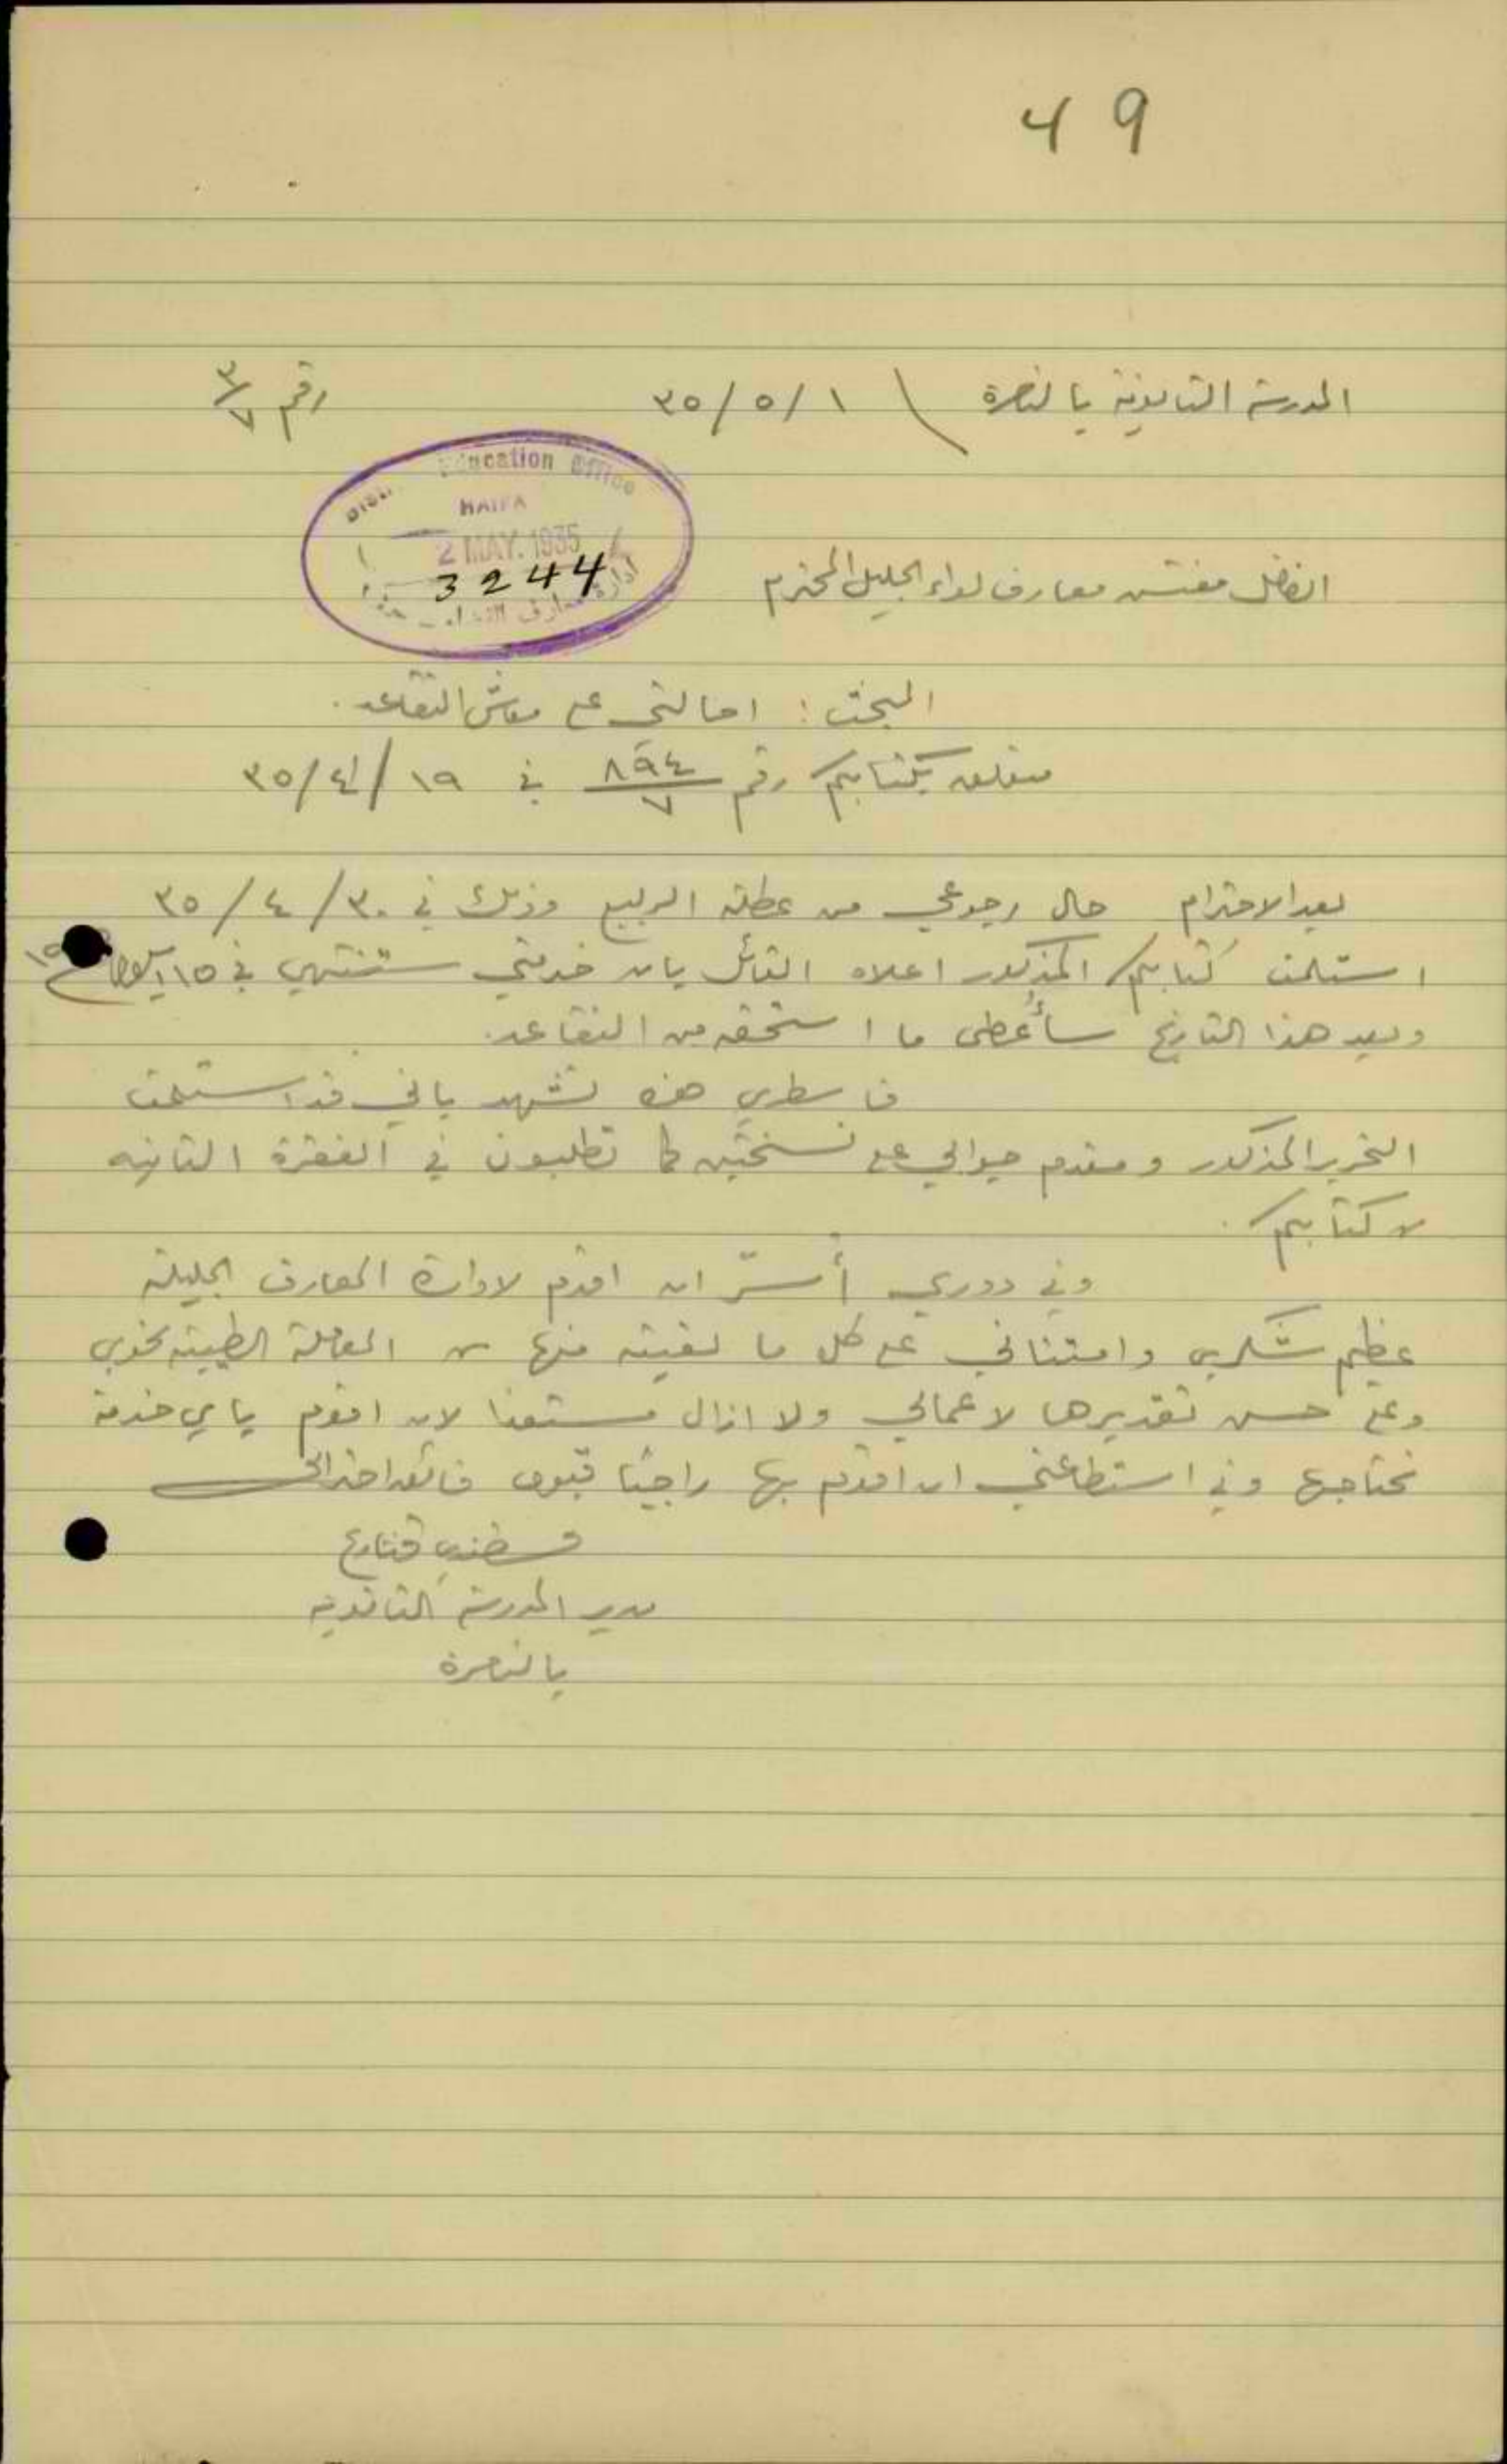 49
المدرسة الثانوية بالناصرة \ ٣٥/٥/١ رقم ٣/٧
Education Office
HAIFA
2 MAY. 1935
3244
ادارة معارف
الفاضل مفتش معارف لواء الجليل المحترم
البحث : احالتي على معاش التقاعد .
متعلق بكتابكم رقم ٨٩٤/٧ في ١٩/٤/٣٥
بعد الاحترام حال رجوعي من عطلة الربيع وذلك في ٣٠/٤/٣٥
استلمت كتابكم المذكور اعلاه القائل بان خدمتي ستنتهي في ١٥
وبعد هذا التاريخ سأُعطى ما استحقه من التقاعد .
فاسطري هذه تشهد باني قد استلمت
التحرير المذكور ومقدم جوابي على نسختين كما تطلبون في الفقرة الثانيه
من كتابكم .
وفي دوري أُسرّ ان اقدم لادارة المعارف الجليلة
عظيم شكري وامتناني على كل ما لقيته منها من المعاملة الطيبة نحوي
وعلى حسن تقديرها لاعمالي ولا ازال مستعدا لان اقوم باي خدمة
تحتاجها وفي استطاعتي ان اقوم بها راجيًا قبول فائق احترامي
قسطندي قنازع
مدير المدرسة الثانوية
بالناصرة